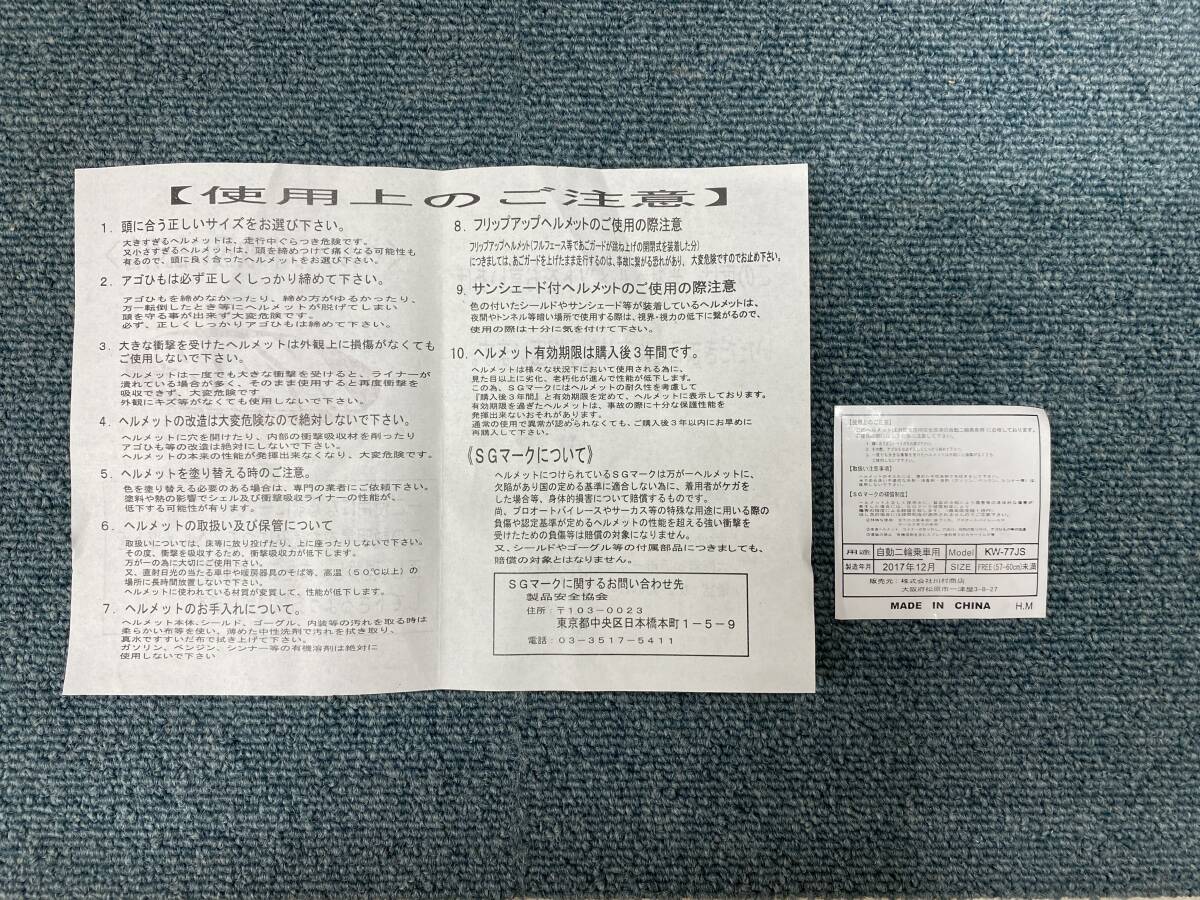 【使用上のご注意】
1. 頭に合う正しいサイズをお選び下さい。
大きすぎるヘルメットは、走行中ぐらつき危険です。
又小さすぎるヘルメットは、頭を締めつけて痛くなる可能性も
有るので、頭に良く合ったヘルメットをお選び下さい。
2. アゴひもは必ず正しくしっかり締めて下さい。
アゴひもを締めなかったり、締め方がゆるかったり、
万一転倒したとき等にヘルメットが脱げてしまい
頭を守る事が出来ず大変危険です。
必ず、正しくしっかりアゴひもは締めて下さい。
3. 大きな衝撃を受けたヘルメットは外観上に損傷がなくても
ご使用しないで下さい。
ヘルメットは一度でも大きな衝撃を受けると、ライナーが
潰れている場合が多く、そのまま使用すると再度衝撃を
吸収できず、大変危険です
外観にキズ等がなくても使用しないで下さい。
4. ヘルメットの改造は大変危険なので絶対しないで下さい。
ヘルメットに穴を開けたり、内部の衝撃吸収材を削ったり
アゴひも等の改造は絶対にしないで下さい。
ヘルメットの本来の性能が発揮出来なくなり、大変危険です。
5. ヘルメットを塗り替える時のご注意。
色を塗り替える必要のある場合は、専門の業者にご依頼下さい。
塗料や熱の影響でシェル及び衝撃吸収ライナーの性能が、
低下する可能性が有ります。
6. ヘルメットの取扱い及び保管について
取扱いについては、床等に放り投げたり、上に座ったりしないで下さい。
その度、衝撃を吸収するため、衝撃吸収力が低下します。
万が一の為に大切にご使用下さい。
又、直射日光の当たる車中や暖房器具のそば等、高温（50℃以上）の
場所に長時間放置しないで下さい。
ヘルメットに使われている材質が変質して、性能が低下します。
7. ヘルメットのお手入れについて。
ヘルメット本体、シールド、ゴーグル、内装等の汚れを取る時は
柔らかい布等を使い、薄めた中性洗剤で汚れを拭き取り、
真水ですすいだ布で拭き上げて下さい。
ガソリン、ベンジン、シンナー等の有機溶剤は絶対に
使用しないで下さい
8. フリップアップヘルメットのご使用の際注意
フリップアップヘルメット(フルフェース等であごガードが跳ね上げの開閉式を装着した分)
につきましては、あごガードを上げたまま走行するのは、事故に繋がる恐れがあり、大変危険ですのでお止め下さい。
9. サンシェード付ヘルメットのご使用の際注意
色の付いたシールドやサンシェード等が装着しているヘルメットは、
夜間やトンネル等暗い場所で使用する際は、視界・視力の低下に繋がるので、
使用の際は十分に気を付けて下さい。
10. ヘルメット有効期限は購入後3年間です。
ヘルメットは様々な状況下において使用される為に、
見た目以上に劣化、老朽化が進んで性能が低下します。
この為、SGマークにはヘルメットの耐久性を考慮して
『購入後3年間』と有効期限を定めて、ヘルメットに表示しております。
有効期限を過ぎたヘルメットは、事故の際に十分な保護性能を
発揮出来ないおそれがあります。
通常の使用で異常が認められなくても、ご購入後3年以内にお早めに
再購入して下さい。
《SGマークについて》
ヘルメットにつけられているSGマークは万がーヘルメットに、
欠陥があり国の定める基準に適合しない為に、着用者がケガを
した場合等、身体的損害について賠償するものです。
尚、プロオートバイレースやサーカス等の特殊な用途に用いる際の
負傷や認定基準が定めるヘルメットの性能を超える強い衝撃を
受けたための負傷等は賠償の対象になりません。
又、シールドやゴーグル等の付属部品につきましても、
賠償の対象とはなりません。
SGマークに関するお問い合わせ先
製品安全協会
住所：〒103-0023
東京都中央区日本橋本町1-5-9
電話：03-3517-5411
【使用上のご注意】
【取扱い注意事項】
【SGマークの補償制度】
用途 自動二輪乗車用 Model KW-77JS
製造年月 2017年12月 SIZE FREE(57-60cm)未満
販売元：株式会社川村商店
大阪府松原市一津屋3-8-27
MADE IN CHINA H.M